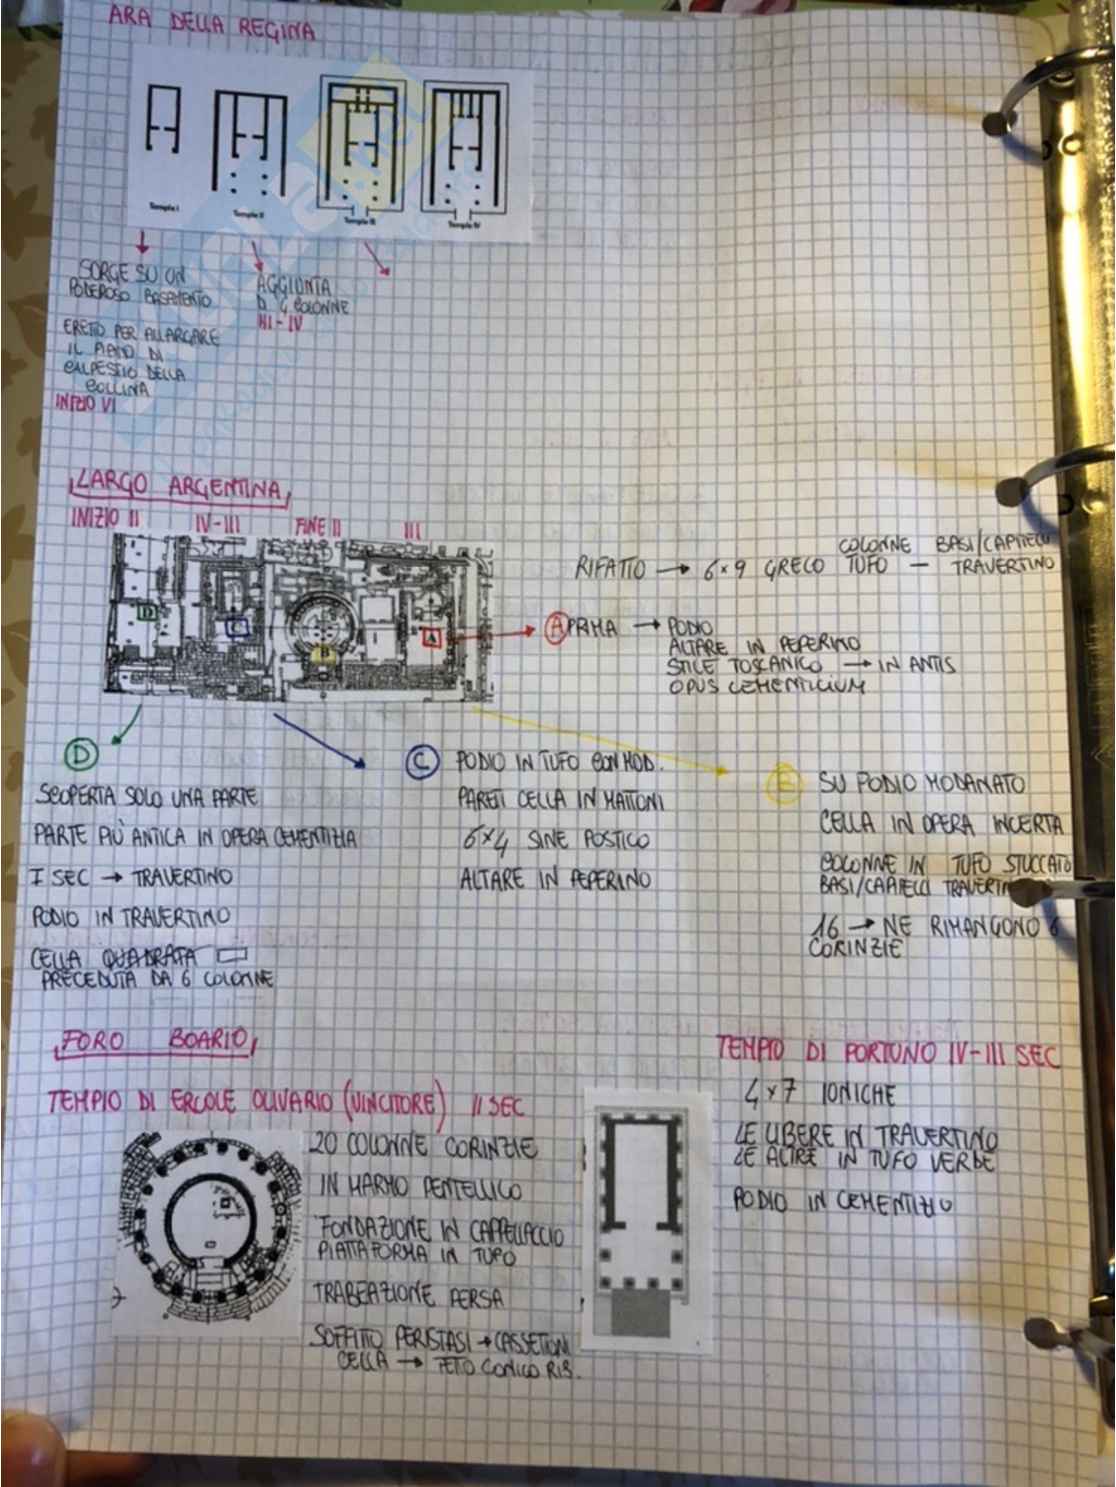 ARA DELLA REGINA
Temple I
Temple II
Temple III
Temple IV
SORGE SU UN
PODEROSO BASAMENTO
ERETTO PER ALLARGARE
IL PIANO DI
CALPESTIO DELLA
COLLINA
INIZIO VI
AGGIUNTA
DI 4 COLONNE
III-IV
LARGO ARGENTINA
INIZIO II
IV-III
FINE II
III
D
B
A
RIFATTO → 6×9 GRECO
COLONNE BASI/CAPITELLI
TUFO — TRAVERTINO
A PRIMA → PODIO
ALTARE IN PEPERINO
STILE TOSCANICO → IN ANTIS
OPUS CEMENTICIUM
D
SCOPERTA SOLO UNA PARTE
PARTE PIÙ ANTICA IN OPERA CEMENTIZIA
I SEC → TRAVERTINO
PODIO IN TRAVERTINO
CELLA QUADRATA
PRECEDUTA DA 6 COLONNE
C PODIO IN TUFO CON MOD.
PARETI CELLA IN MATTONI
6×4 SINE POSTICO
ALTARE IN PEPERINO
B SU PODIO MODANATO
CELLA IN OPERA INCERTA
COLONNE IN TUFO STUCCATO
BASI/CAPITELLI
16 → NE RIMANGONO 6
CORINZIE
FORO BOARIO
TEMPIO DI ERCOLE OLIVARIO (VINCITORE) II SEC
20 COLONNE CORINZIE
IN MARMO PENTELLICO
FONDAZIONE IN CAPPELLACCIO
PIATTAFORMA IN TUFO
TRABEAZIONE PERSA
SOFFITTO PERISTASI → CASSETTONI
CELLA → TETTO CONICO RIS.
TEMPIO DI PORTUNO IV-III SEC
4×7 IONICHE
LE LIBERE IN TRAVERTINO
LE ALTRE IN TUFO VERDE
PODIO IN CEMENTIZIO